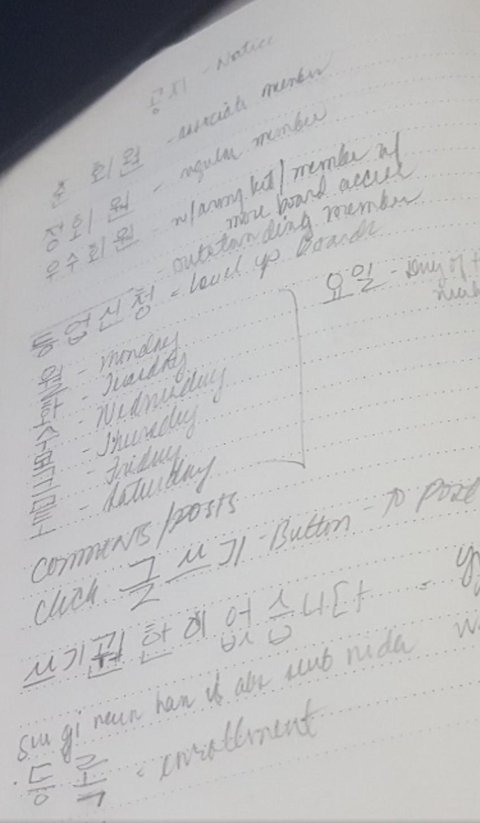 공지 - Notice
준 회원 - associate member
정회원 - regular member
우수회원 - w/army kit/member w/
more board access
- outstanding member
등업신청 = level up boards
요일 - Day of
월 - Monday
화 - Tuesday
수 - Wednesday
목 - Thursday
금 - Friday
토 - Saturday
comments/posts
click 글쓰기 - Button - To post
쓰기권한이 없습니다 -
ssu gi neun han i abs seub nida
등록 = enrollment